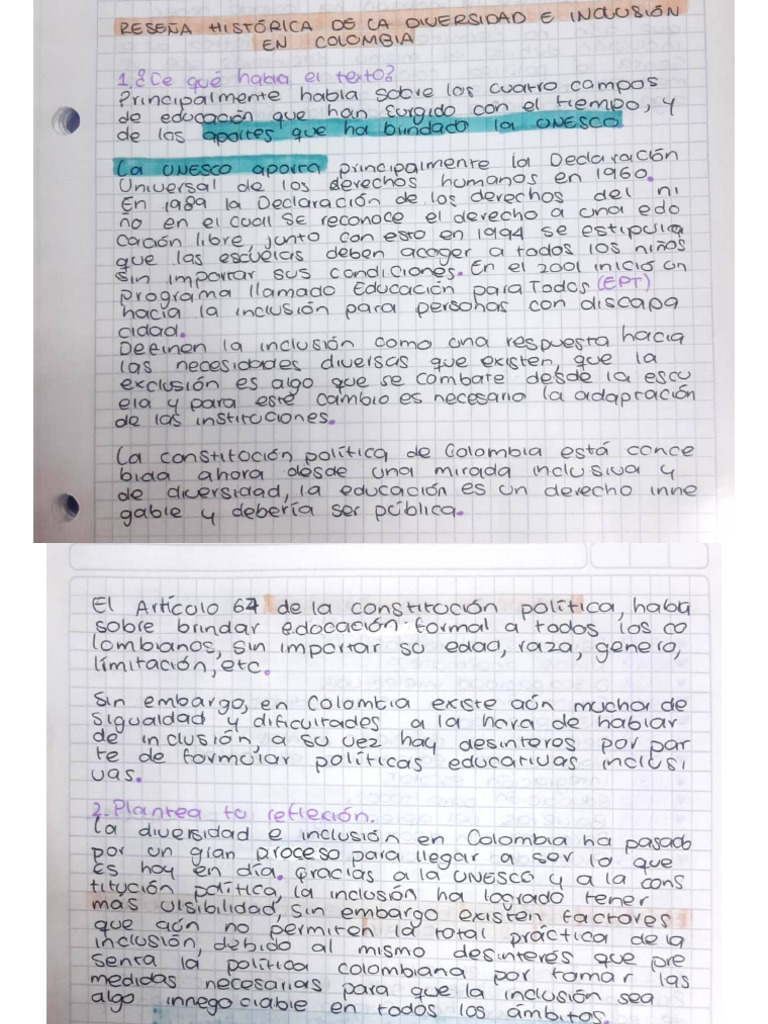 RESEÑA HISTÓRICA DE LA DIVERSIDAD E INCLUSIÓN
EN COLOMBIA
1.¿Ce qué habla el texto?
Principalmente habla sobre los cuatro campos
de educación que han surgido con el tiempo, y
de los aportes que ha brindado la UNESCO
La UNESCO aporta principalmente la Declaración
Universal de los derechos humanos en 1960.
En 1989 la Declaración de los derechos del ni
ño en el cual se reconoce el derecho a una edu
cación libre, junto con esto en 1994 se estipula
que las escuelas deben acoger a todos los niños
sin importar sus condiciones. En el 2001 inició un
programa llamado Educación para Todos (EPT)
hacia la inclusión para personas con discapa
cidad.
Definen la inclusión como una respuesta hacia
las necesidades diversas que existen, que la
exclusión es algo que se combate desde la escu
ela y para este cambio es necesario la adaptación
de las instituciones.
La constitución política de Colombia está conce
bida ahora desde una mirada inclusiva y
de diversidad, la educación es un derecho inne
gable y debería ser pública.
El Artículo 67 de la constitución política, habla
sobre brindar educación formal a todos los co
lombianos, sin importar su edad, raza, genero,
limitación, etc.
Sin embargo, en Colombia existe aún mucha de
sigualdad y dificultades a la hora de hablar
de inclusión, a su vez hay desinteres por par
te de formular políticas educativas inclusi
vas.
2. Plantea tu reflexión.
La diversidad e inclusión en Colombia ha pasado
por un gran proceso para llegar a ser lo que
es hoy en día. gracias a la UNESCO y a la cons
titución política, la inclusión ha logrado tener
más visibilidad, sin embargo existen factores
que aún no permiten la total práctica de la
inclusión, debido al mismo desinterés que pre
senta la política colombiana por tomar las
medidas necesarias para que la inclusión sea
algo innegociable en todos los ámbitos.